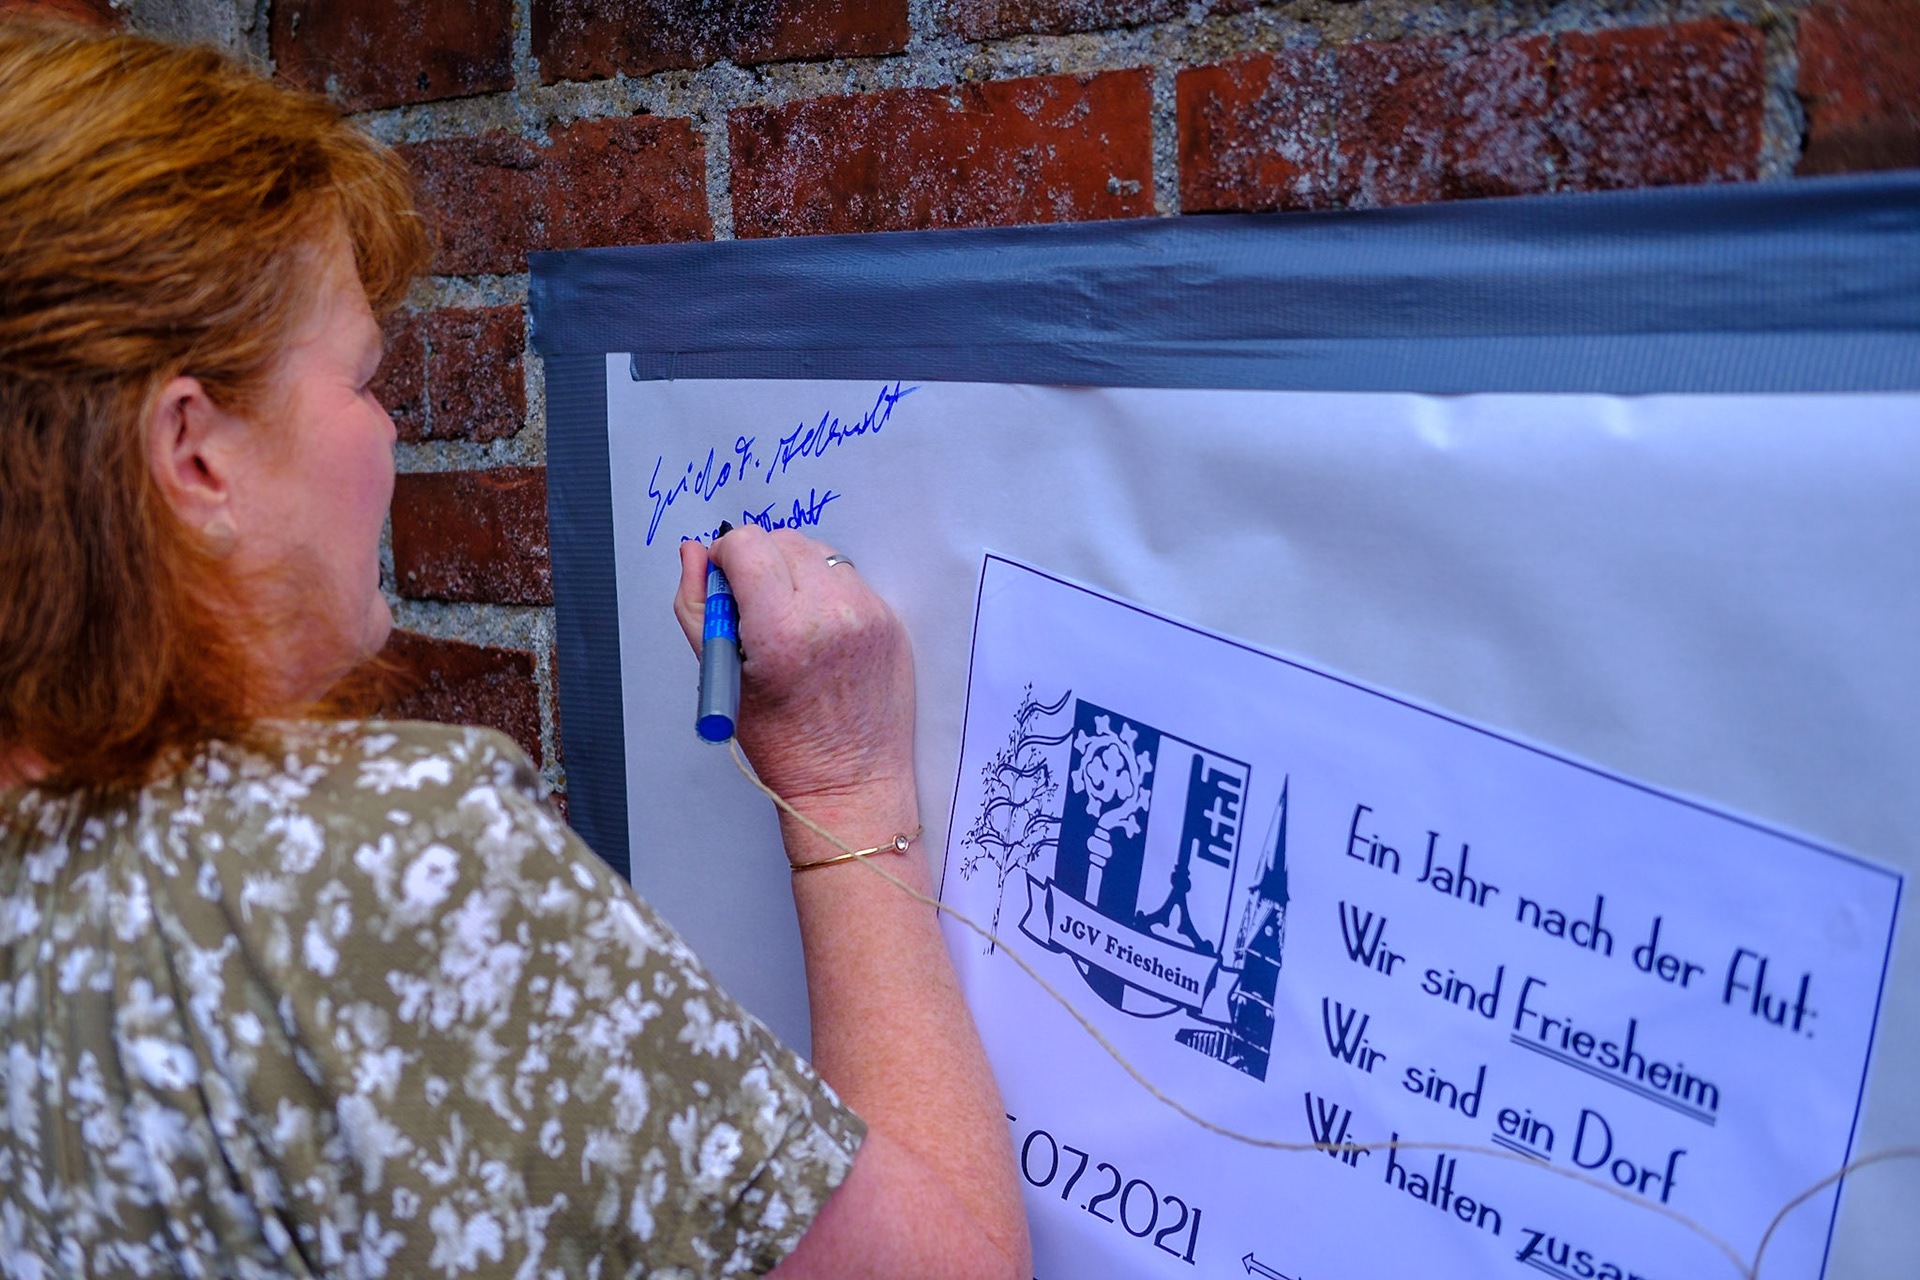 Guido F.
JGV Friesheim
Ein Jahr nach der Flut:
Wir sind Friesheim
Wir sind ein Dorf
Wir halten zusa
07.2021